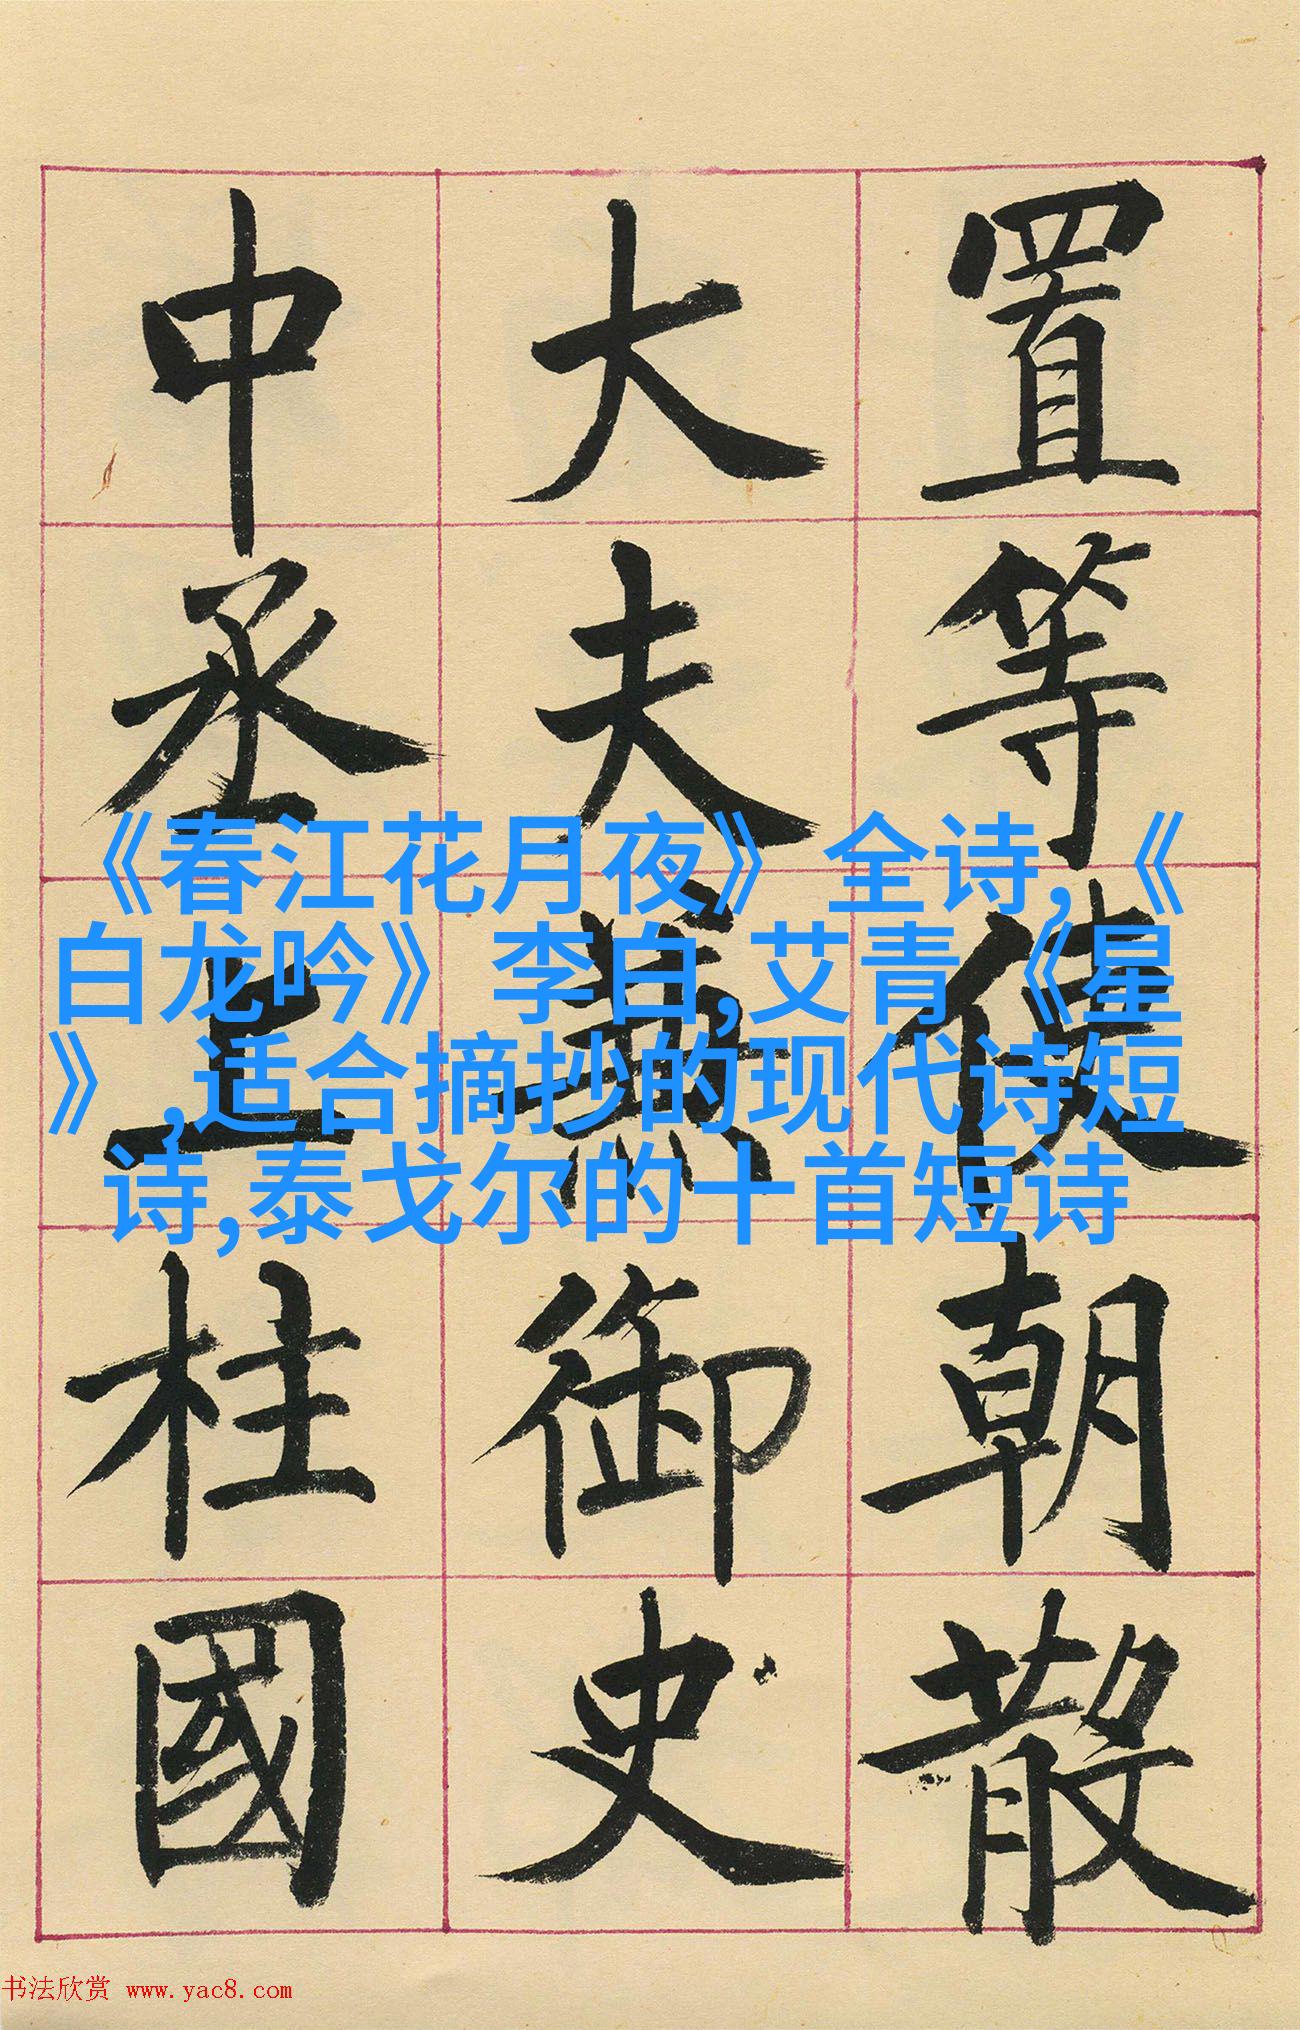 置等使朝散
大夫兼御史
中丞上柱國
《春江花月夜》全诗,《
白龙吟》李白,艾青《星
》,适合摘抄的现代诗短
诗,泰戈尔的十首短诗
书法欣赏 www.yac8.com